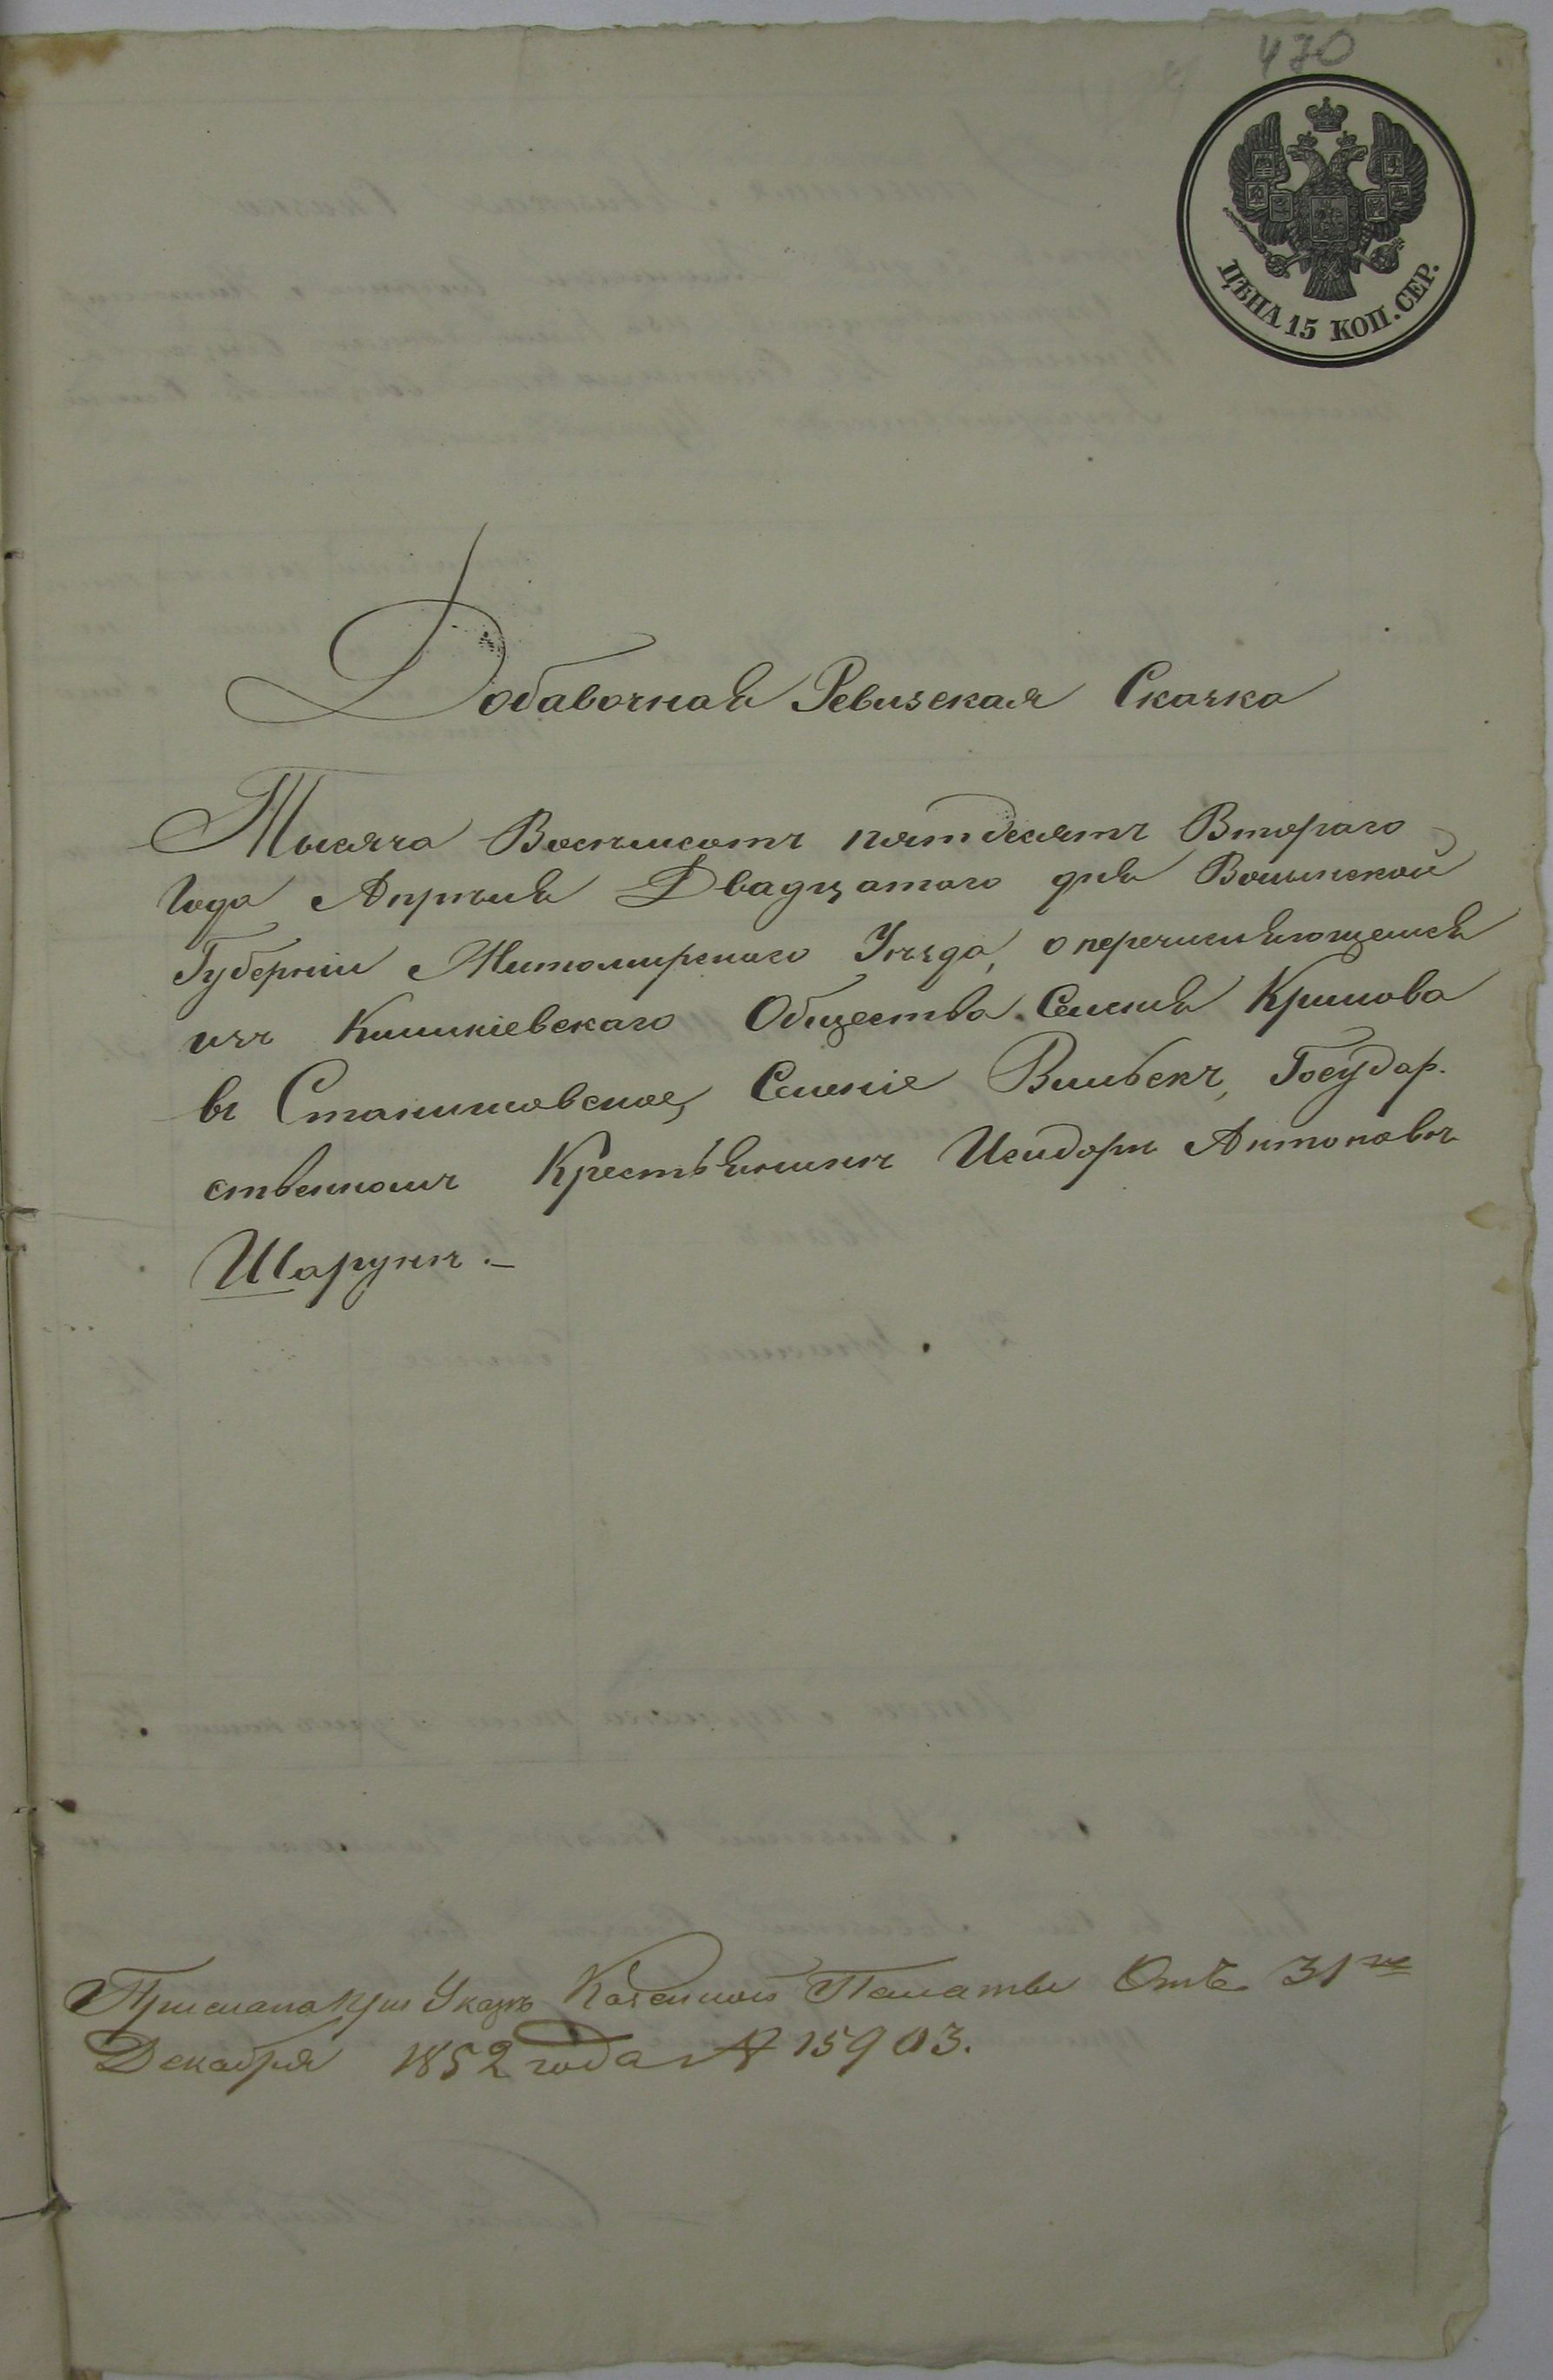 470
ЦѢНА 15 КОП. СЕР.
Добавочная Ревизская Сказка
Тысяча Восемьсотъ пятдесятъ Втораго
Года Апрѣля Двадцатого дня Волынской
Губерніи Житомирскаго Уѣзда, о перечисляющемся
изъ Кишкіевскаго Общества Селенія
въ Станишовское, Селеніе Вильскъ, Государ.
ственномъ Крестьянинѣ Исидорѣ Антоновѣ
Шарунѣ.
Прислана при Указѣ Казенной Палаты Отъ 31го
Декабря 1852 года № 15903.